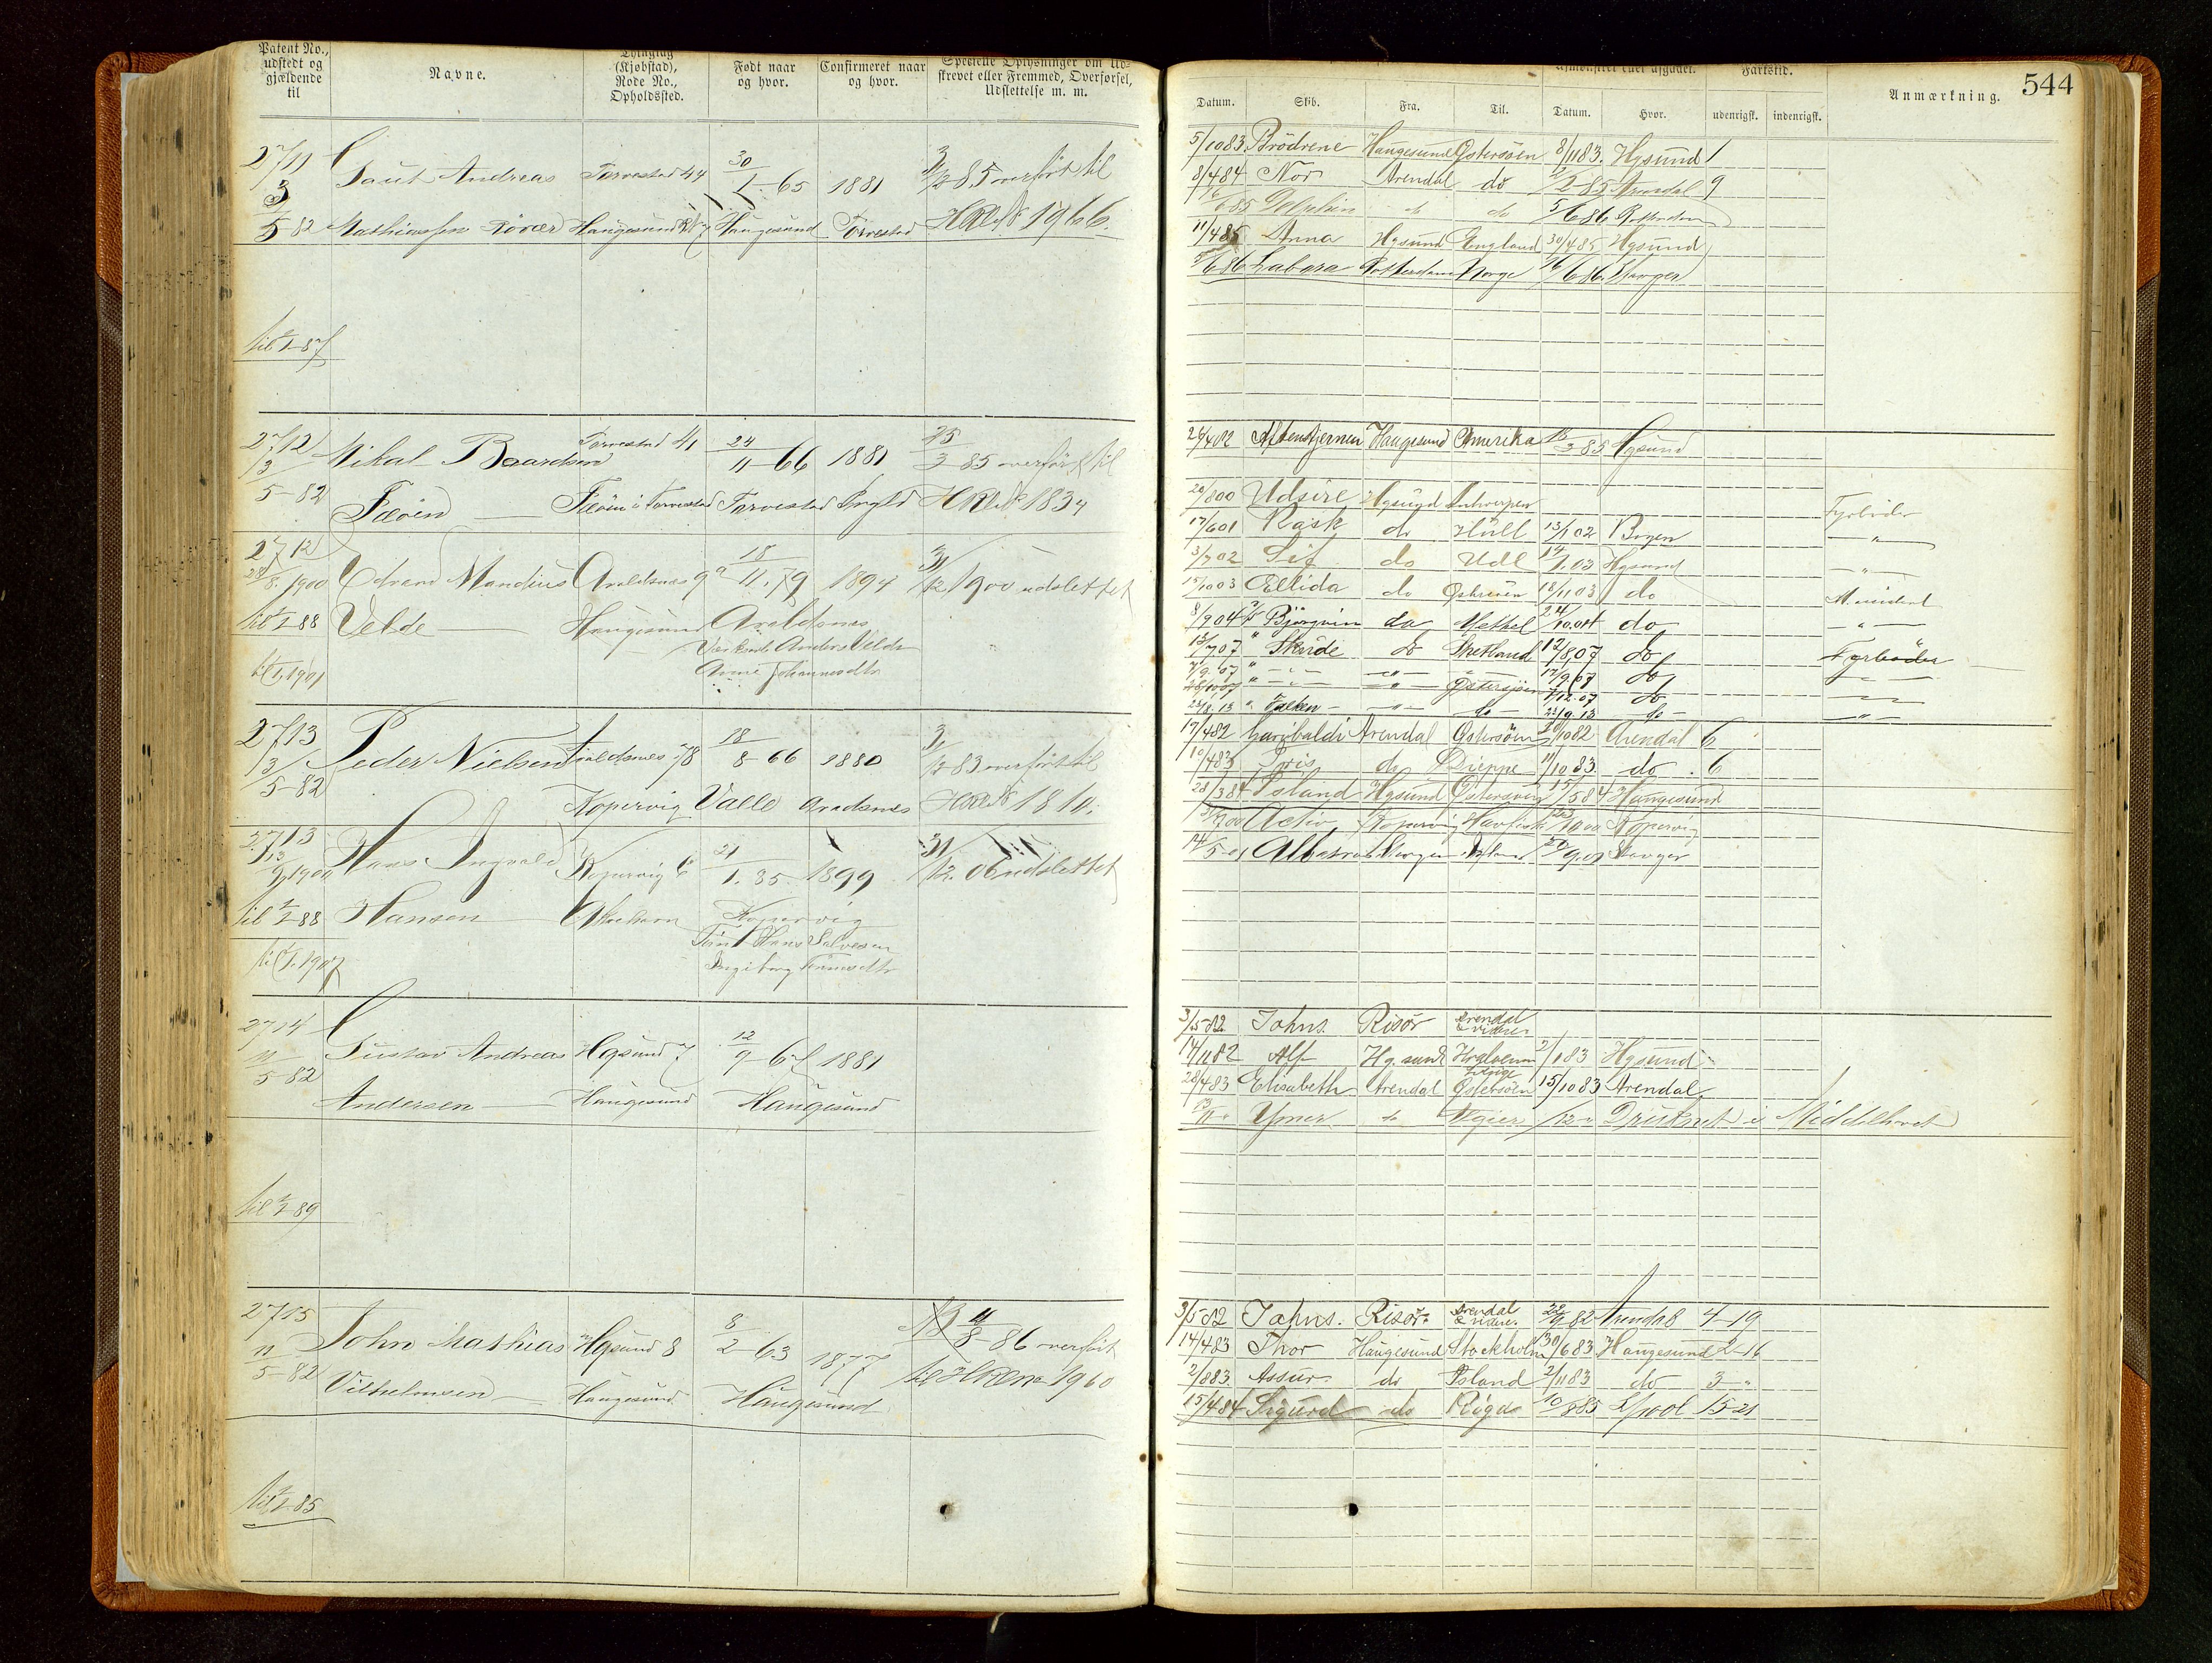 Patent No., udstedt og gjældende til
Navne.
(Kjøbstad), Rode No., Opholdssted.
Født naar og hvor.
Confirmeret naar og hvor.
Specielle Oplysninger om Udskrevet eller Fremmed, Overførsel, Udslettelse m. m.
2711 Gaut Andreas Torvestad 44 30/1-65 1881 31/12 85 overført til
3/5 82 Mathiassen Røvær Haugesund Haugesund Torvestad HRulle No 1966.
til 1/1-87
2712 Mikal Baardsen Torvestad 41 24/11-66 1881 25/3-85 overført til
3/5-82 Fæøen Fæøen i Torvestad Torvestad HRulle No 1834
2712
28/8 1900 Edvard Mandius Avaldsnes 9 18/11.79 1894 31/12 1900 udslettet
til 1/1-88 Velde Haugesund Avaldsnes
Anders Velde
til 1/1 1901 Anne Johannesdtr
2713 Peder Nielsen Avaldsnes 78 18/8-66 1880 31/12 83 overført til
3/5-82 Kopervig Valle HRulle No 1810.
2713
1900 Hans Ingvald Kopervig 6 21/1.85. 1899 31/12. 06 udslettet
til 1/1-88 Hansen Kopervig
Hans Salvesen
til 1/1.1907 Ingeborg
2714 Gustav Andreas Hgsund 7 12/9-67 1881
11/5-82 Andersen Haugesund Haugesund
til 1/1-89
2715 John Mathias Hgsund 8 8/2-63 1877 4/8-86 overført
11/5-82 Vilhelmsen Haugesund Haugesund til HRulle No 1960
til 1/1-85
544
Afmønstret (eller afgaaet).
Fartstid.
Anmærkning.
Datum. Skib. Fra. Til. Datum. Hvor. udenrigsk. indenrigsk.
5/10 83 Brødrene Haugesund Østersøen 8/11 83. Hgsund 1
8/4 84 Nor Arendal do 2/2 85 Arendal 9
Dolphin do do 5/6 86 Rotterdam
11/4 85 Anna Hgsund England 30/4 85 Hgsund
5/6 86 Labora Rotterdam Norge 16/6 86. Stavger
24/4 82 Aftenstjernen Haugesund Amerika 18/3 85 Hgsund
20/8 00 Udsire Hgsund Antwerpen Fyrbøder
17/6 01 Rask do Hull 13/1 02 Bergen - " -
3/7 02 Sif do Udl 14/1.03 Hgsund - " -
15/10 03 Ellida do Østersøen 18/11 03 do
8/9 04 Bjørgvin do Methel 24/10.04 do - " -
13/7 07 " Skude do Shetland 12/8 07 do Fyrbøder
7/9 07 " - " - - " - 17/9 07 do - " -
28/10 07 " - " - - " - Østersjøen 7/12.07 do - " -
23/8.13 " Falken - - " - do 23/9.13 do - - " -
17/4 82 Garibaldi Arendal Østersøen 10 82 Arendal 6
10/4 83 Iris do Dieppe 11/10 83. do . 6
28/3 84 Island Hgsund Østersøen 15/5 84 Haugesund
Activ Kopervig Havfiske Kopervig
14/5-01 Albatros Stavger Island 9.01 Stavger
3/5 82 Johns. Risør Arendal & videre
14/11 82 Alf Hgsund 2/1 83 Hgsund
28/4 83 Elisabeth Arendal Østersøen 15/10 83 Arendal
Ymer do Algier /12 " Druknet i Middelhavet
3/5 82 Johns. Risør Arendal & videre. 22/9 82 Arendal 4-19
14/4 83 Thor Haugesund Stockholm 30/6 83 Haugesund 2-16
2/8 83. Assur do Island 2/11 83 do 3-"
15/4 84 Sigurd do Riga 10/8 85 Lpool 15-21